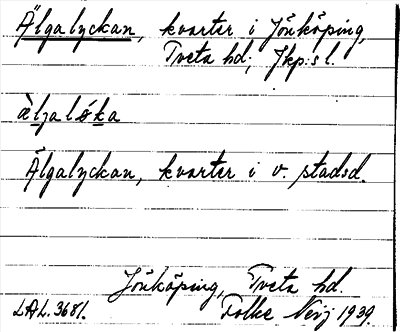 Älgalyckan, kvarter i Jönköping,
Tveta hd; Jkp:s l.
æ̀ljaló̷ka
Älgalyckan, kvarter i v. stadsd.
Jönköping, Tveta hd.
LAL.3681. Folke Nerj 1939.